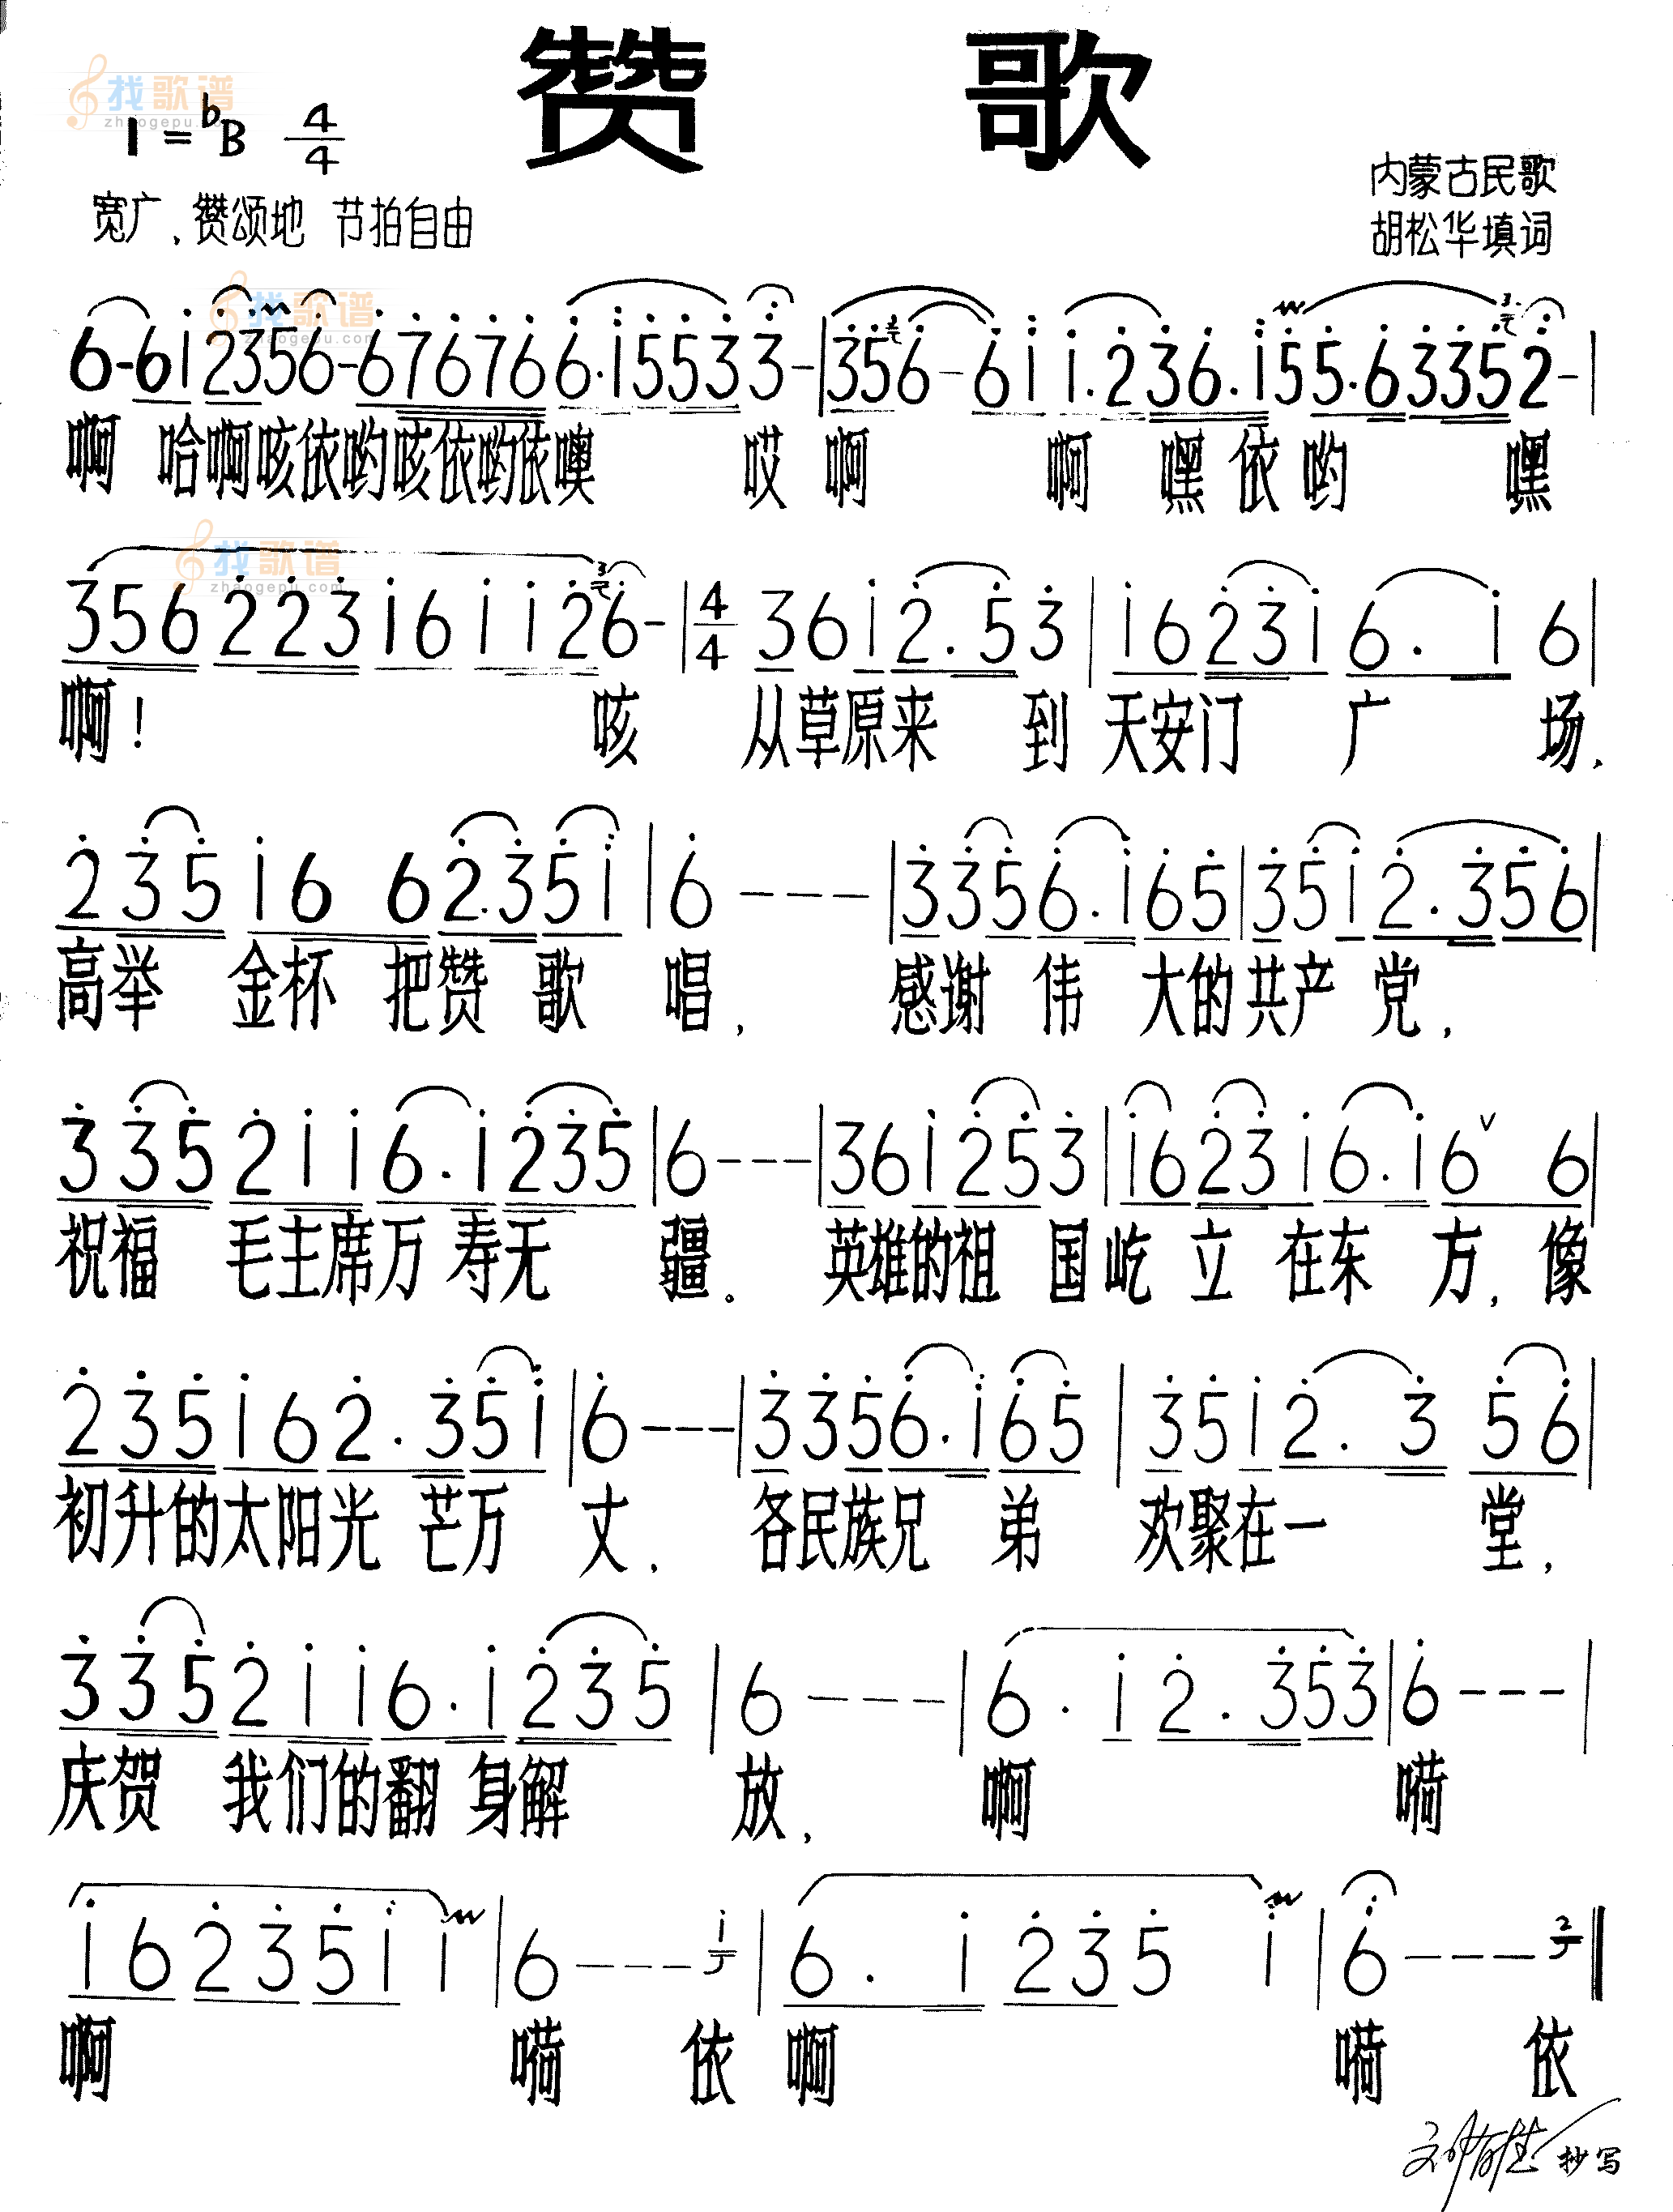 赞 歌
找歌谱
zhaogepu.com
1=♭B 4/4
内蒙古民歌
宽广、赞颂地 节拍自由
胡松华填词
找歌谱
zhaogepu.com
6-6i2356-676766.i5533-|356-6ii.236.i55.63352-|
啊 哈啊咳依哟咳依哟依噢 哎 啊 啊 嘿 依 哟 嘿
找歌谱
zhaogepu.com
356 223 i6 ii26-|4/4 36i2.53|i623i6.i6|
啊! 咳 从草原来 到 天安门 广 场、
235 i6 62.35i|6---|3356.i65|35i2.356|
高举 金杯 把赞 歌 唱, 感谢 伟 大的共产 党,
335 2ii6.i235|6---|36i253|i623i6.i6∨6|
祝福 毛主席万 寿无 疆。 英雄的祖 国屹 立 在东 方, 像
235i62.35i|6---|3356.i65|35i2.3 56|
初升的太阳光 芒万 丈, 各民族兄 弟 欢聚在一 堂,
335 2ii6.i235|6---|6.i2.353|6---|
庆贺 我们的翻 身解 放, 啊 嗬
i6235ii|6---i|6.i235 i|6---2‖
啊 嗬 依 啊 嗬 依
抄写